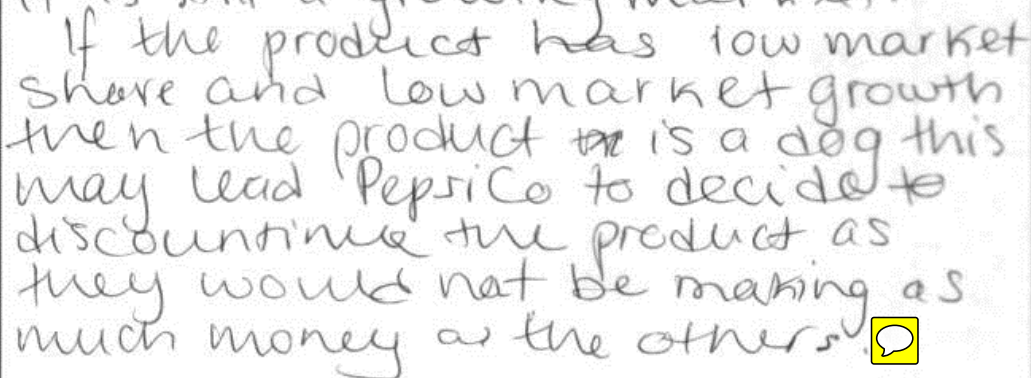 If the product has low market
share and low market growth
then the product is a dog this
may lead PepsiCo to decide to
discountinue the product as
they would not be making as
much money as the others.